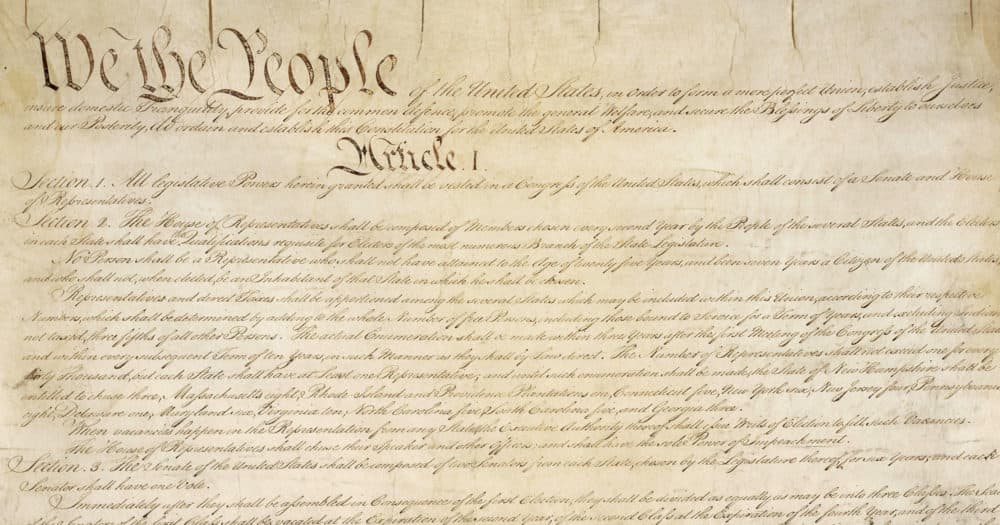 We the People of the United States, in Order to form a more perfect Union, establish Justice,
insure domestic Tranquility, provide for the common defence, promote the general Welfare, and secure the Blessings of Liberty to ourselves
and our Posterity, do ordain and establish this Constitution for the United States of America.
Article. I.
Section. 1. All legislative Powers herein granted shall be vested in a Congress of the United States, which shall consist of a Senate and House
of Representatives.
Section. 2. The House of Representatives shall be composed of Members chosen every second Year by the People of the several States, and the Electors
in each State shall have the Qualifications requisite for Electors of the most numerous Branch of the State Legislature.
No Person shall be a Representative who shall not have attained to the Age of twenty five Years, and been seven Years a Citizen of the United States,
and who shall not, when elected, be an Inhabitant of that State in which he shall be chosen.
Representatives and direct Taxes shall be apportioned among the several States which may be included within this Union, according to their respective
Numbers, which shall be determined by adding to the whole Number of free Persons, including those bound to Service for a Term of Years, and excluding Indians
not taxed, three fifths of all other Persons. The actual Enumeration shall be made within three Years after the first Meeting of the Congress of the United States,
and within every subsequent Term of ten Years, in such Manner as they shall by Law direct. The Number of Representatives shall not exceed one for every
thirty Thousand, but each State shall have at Least one Representative; and until such enumeration shall be made, the State of New Hampshire shall be
entitled to chuse three, Massachusetts eight, Rhode Island and Providence Plantations one, Connecticut five, New York six, New Jersey four, Pennsylvania
eight, Delaware one, Maryland six, Virginia ten, North Carolina five, South Carolina five, and Georgia three.
When vacancies happen in the Representation from any State, the Executive Authority thereof shall issue Writs of Election to fill such Vacancies.
The House of Representatives shall chuse their Speaker and other Officers; and shall have the sole Power of Impeachment.
Section. 3. The Senate of the United States shall be composed of two Senators from each State, chosen by the Legislature thereof, for six Years; and each
Senator shall have one Vote.
Immediately after they shall be assembled in Consequence of the first Election, they shall be divided as equally as may be into three Classes. The Seats
of the Senators of the first Class shall be vacated at the Expiration of the second Year, of the second Class at the Expiration of the fourth Year, and of the third